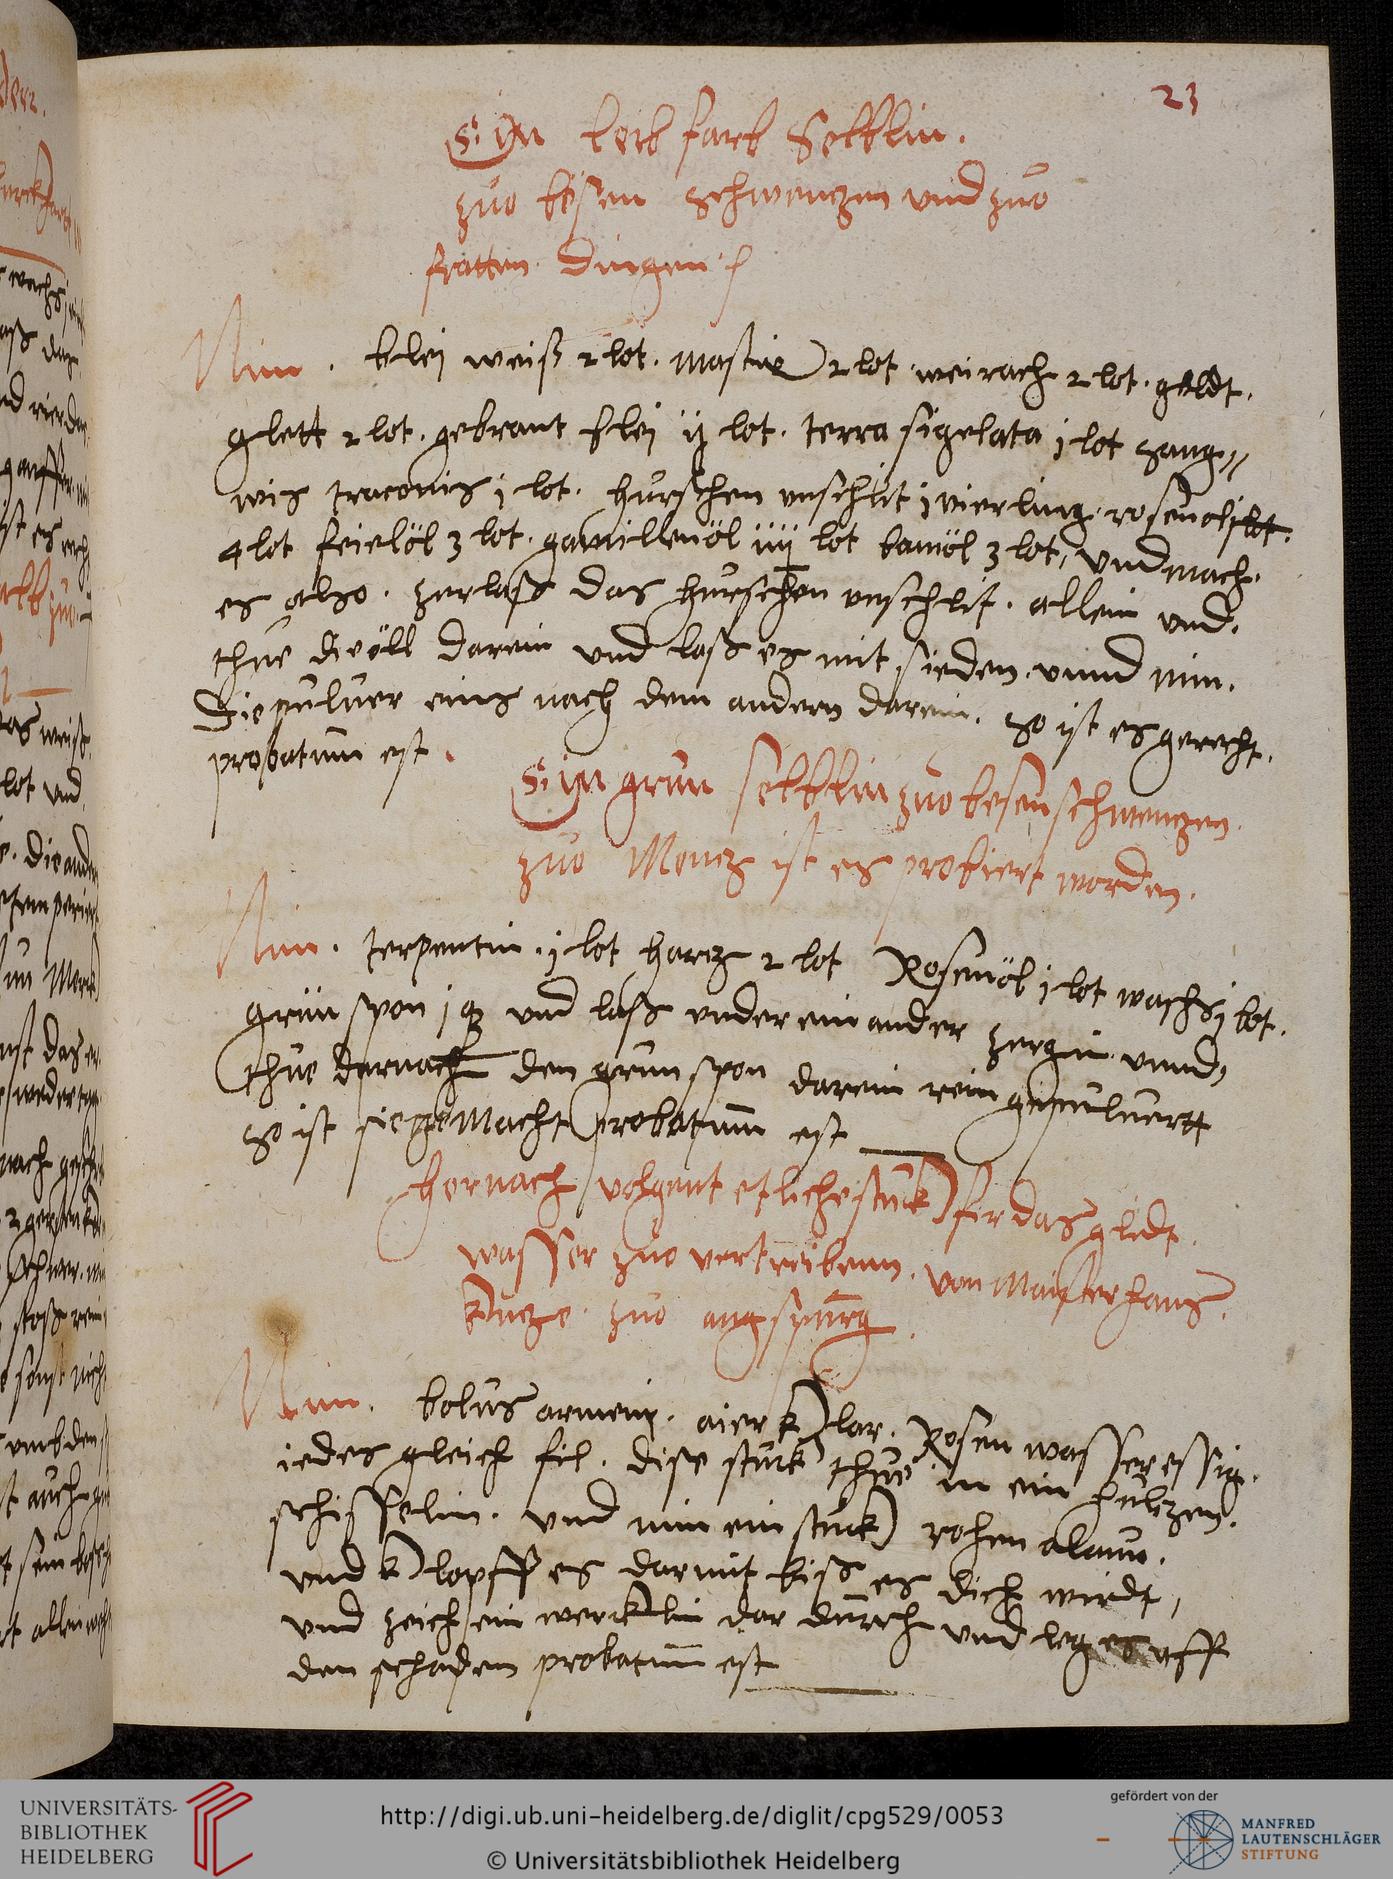 23
Ein leib farb Selblin.
zuo bösen schwenczen und zuo
fratten dingen
Nim. bleÿ weiß 2 lot. mastix 2 lot weirach 2 lot. goldt.
glett 2 lot. gebrant bleÿ ij lot. terra sigelata j lot sang„
wis traconis j lot. hürschen vnschlit j vierling. rosenöl
4 lot feielöl 3 lot. gamillenöl iiij lot bamöl 3 lot, und mach.
es also. zerlaß das hürschen vnschlit. allein und.
thue die öll darein und laß es mit sieden vnnd nim.
die puluer eins nach dem andern darein. so ist es gerecht.
probatum est.
Ein grün selblin zuo besen schwenczen
zuo Mencz ist es probiert worden.
Nim. terpentin. j lot harcz 2 lot Rosenöl j lot wachs j lot.
grün spon j q und laß under ein ander zergin vnnd,
thue darnach den grün spon darein rein gepuluertt
so ist sie gemacht probatum est
Hernach volgent etliche stuck fir das glidt.
wasser zuo vertreibenn. von Maister hans.
zuo augspurg
Nim. bolus armeni. aier klar. Rosen wasser essig.
iedes gleich fil. dise stuck thue in ein hülzen.
schisselin. und nim ein stuck rohen alaun.
und klopff es darmit biß es dick wirdt,
und zeich ein wercklin dar durch und leg es uff
den schaden probatum est
UNIVERSITÄTS-
BIBLIOTHEK
HEIDELBERG
http://digi.ub.uni-heidelberg.de/diglit/cpg529/0053
© Universitätsbibliothek Heidelberg
gefördert von der
MANFRED
LAUTENSCHLÄGER
STIFTUNG